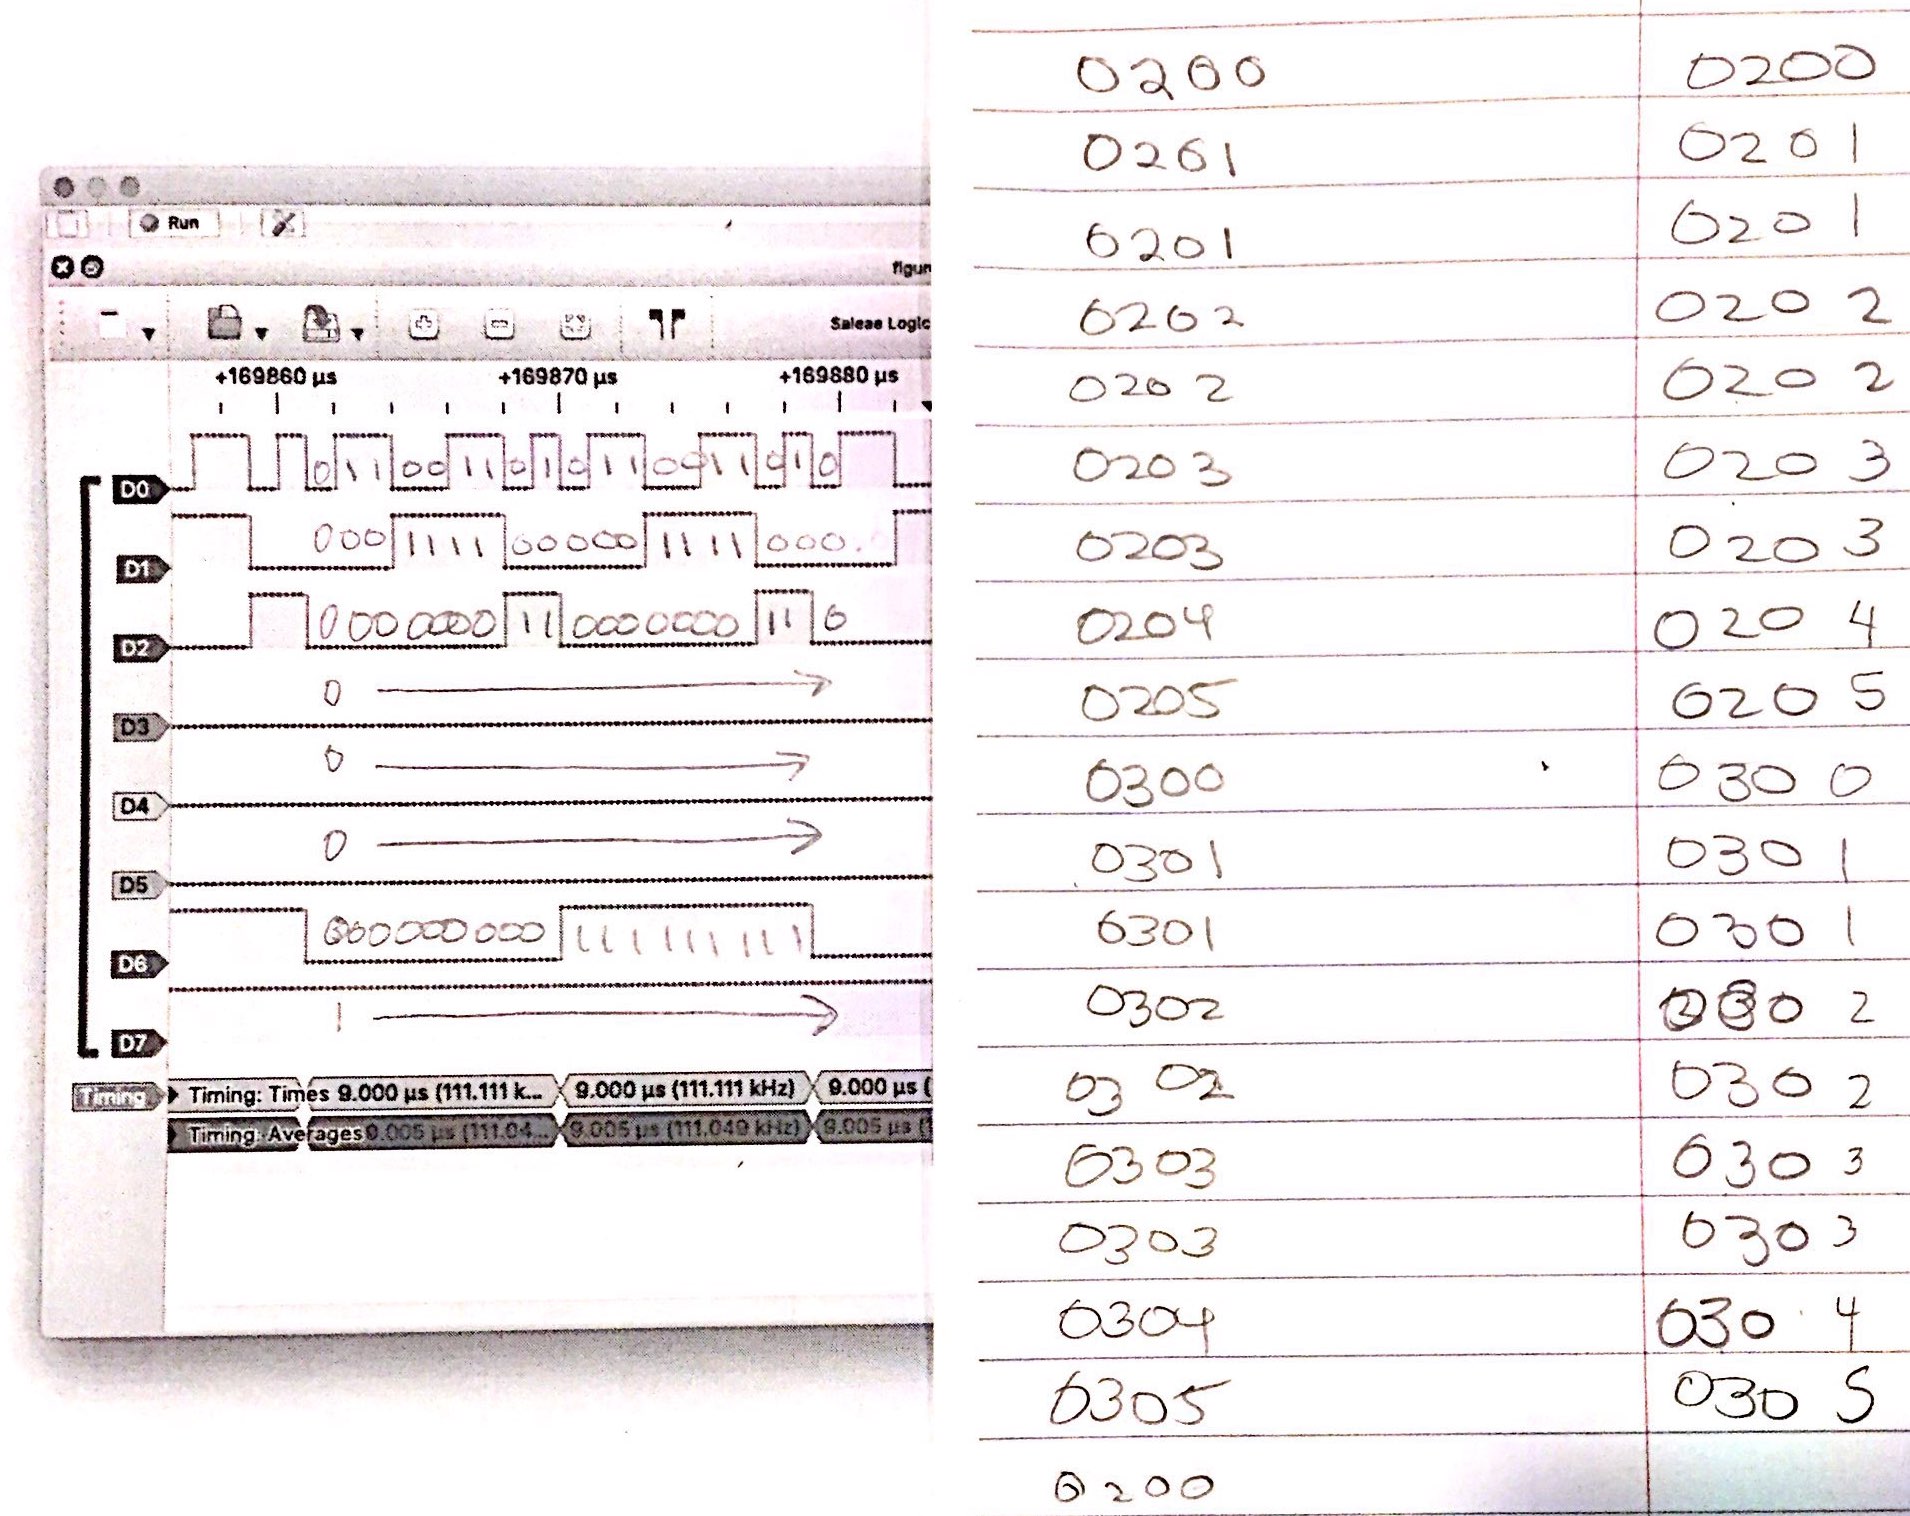 Run
figur
Saleae Logic
+169860 µs +169870 µs +169880 µs
D0 0 1 1 0 0 1 1 0 1 0 1 1 0 0 1 1 0 1 0
D1 0 0 0 1 1 1 1 0 0 0 0 0 1 1 1 1 0 0 0
D2 0 0 0 0 0 0 0 1 1 0 0 0 0 0 0 0 1 1 0
0
D3
0
D4
0
D5
D6 0 0 0 0 0 0 0 0 0 1 1 1 1 1 1 1 1 1
1
D7
Timing Timing: Times 9.000 µs (111.111 k... 9.000 µs (111.111 kHz) 9.000 µs (
Timing: Averages 9.005 µs (111.04... 9.005 µs (111.049 kHz) 9.005 µs (1
0200 0200
0201 0201
0201 0201
0202 0202
0202 0202
0203 0203
0203 0203
0204 0204
0205 0205
0300 0300
0301 0301
0301 0301
0302 0302
0302 0302
0303 0303
0303 0303
0304 0304
0305 0305
0200